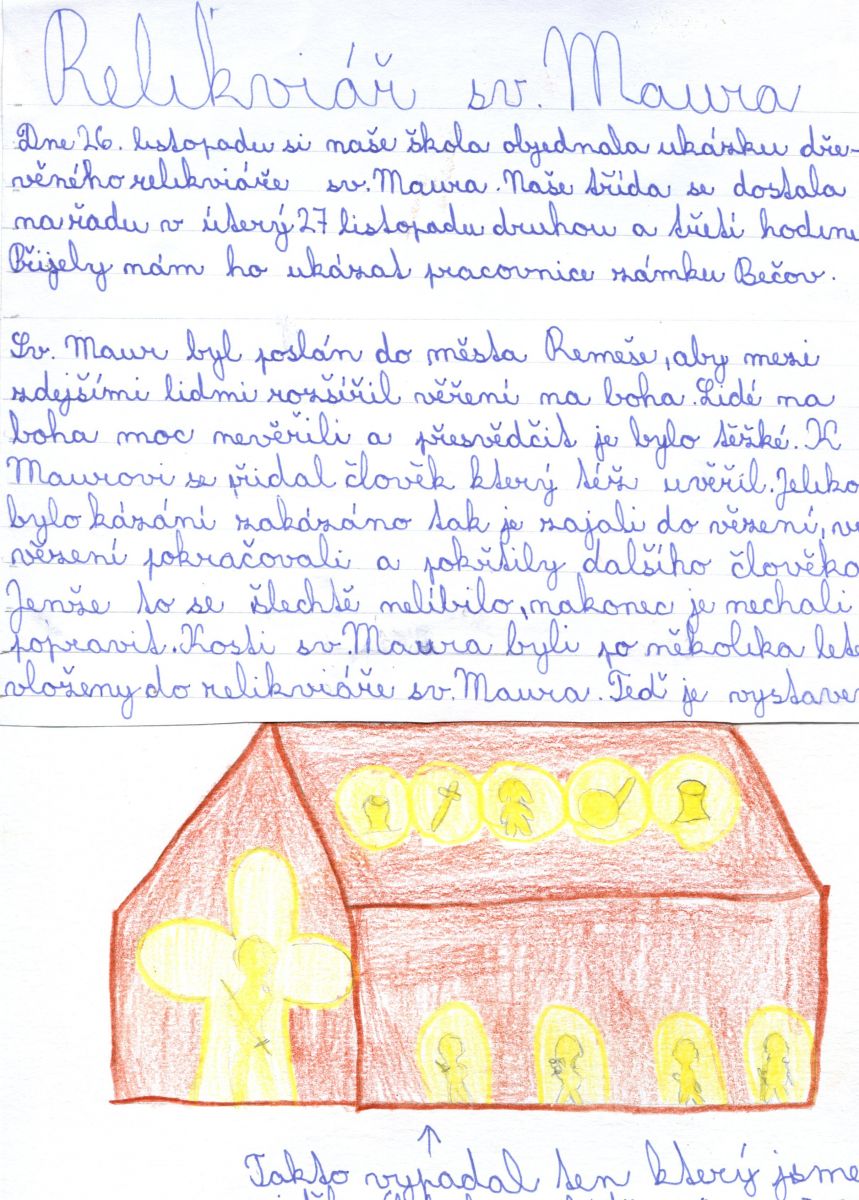 Relikviář sv. Maura
Dne 26. listopadu si naše škola objednala ukázku dře-
věného relikviáře sv. Maura. Naše třída se dostala
na řadu v úterý 27 listopadu druhou a třetí hodinu
Přijely nám ho ukázat pracovnice zámku Bečov.
Sv. Maur byl poslán do města Remeše, aby mezi
zdejšími lidmi rozšířil věření na boha. Lidé na
boha moc nevěřili a přesvědčit je bylo těžké. K
Maurovi se přidal člověk který též uvěřil. Jeliko
bylo kázání zakázáno tak je zajali do vězení, ve
vězení pokračovali a pokřtily dalšího člověka
Jenže to se šlechtě nelíbilo, nakonec je nechali
popravit. Kosti sv. Maura byli po několika lete
vloženy do relikviáře sv. Maura. Teď je vystave
Takto vypadal ten který jsme